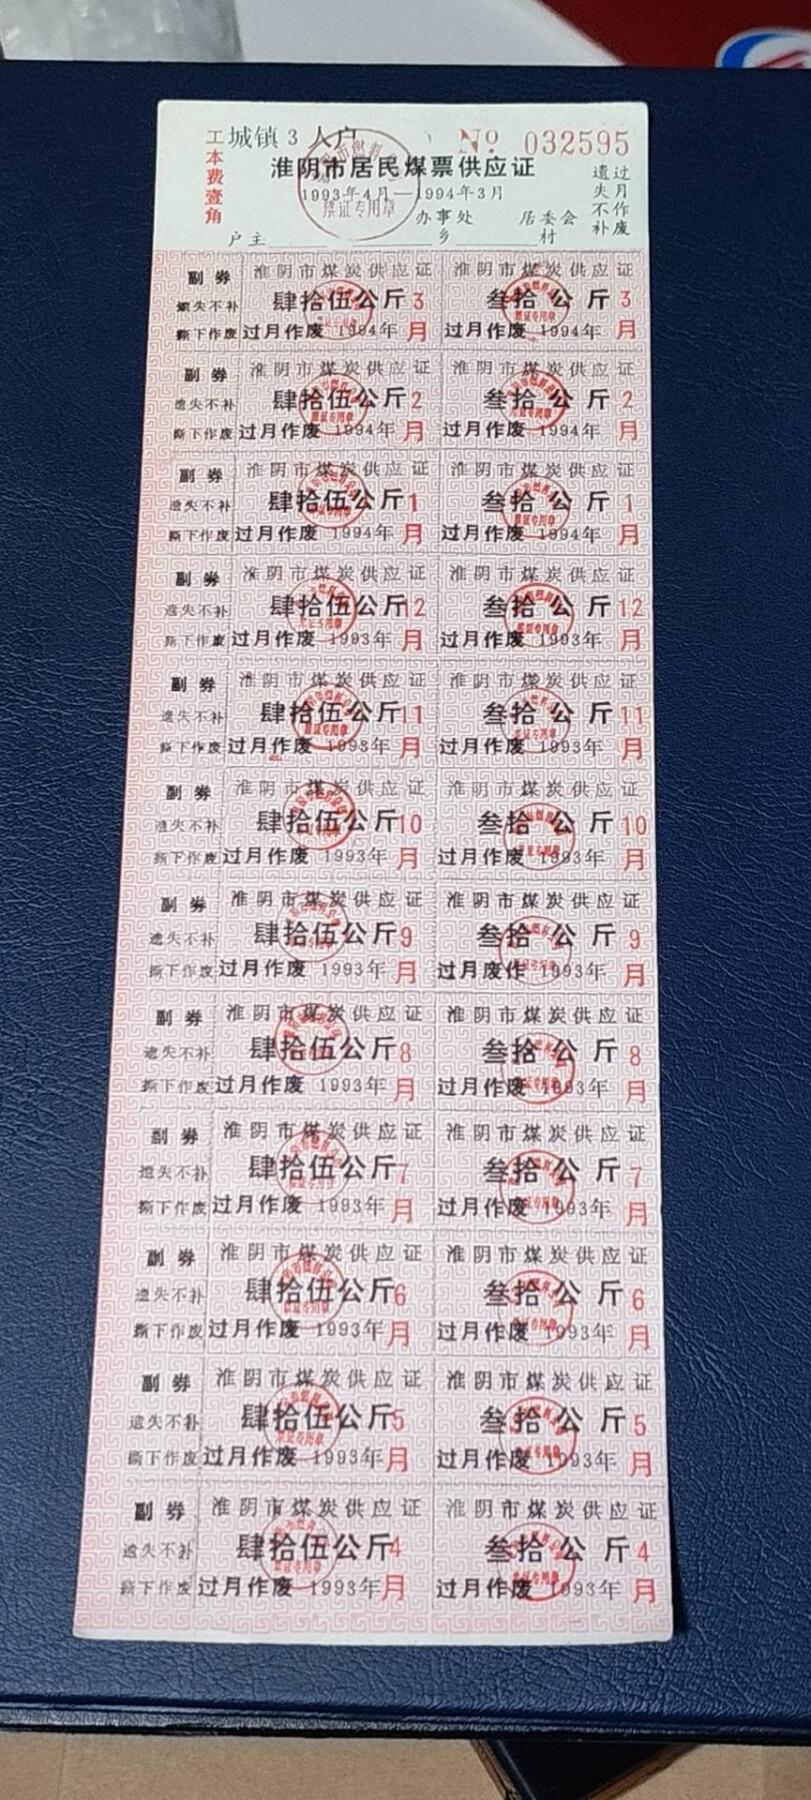 工本费壹角
城镇3人户
№ 032595
淮阴市居民煤票供应证
1993年4月—1994年3月
票证专用章
遗失不补
过月作废
户主 办事处 居委会
乡 村
副券 淮阴市煤炭供应证 淮阴市煤炭供应证
遗失不补 肆拾伍公斤 3 叁拾公斤 3
撕下作废 过月作废 1994年 月 过月作废 1994年 月
副券 淮阴市煤炭供应证 淮阴市煤炭供应证
遗失不补 肆拾伍公斤 2 叁拾公斤 2
撕下作废 过月作废 1994年 月 过月作废 1994年 月
副券 淮阴市煤炭供应证 淮阴市煤炭供应证
遗失不补 肆拾伍公斤 1 叁拾公斤 1
撕下作废 过月作废 1994年 月 过月作废 1994年 月
副券 淮阴市煤炭供应证 淮阴市煤炭供应证
遗失不补 肆拾伍公斤 12 叁拾公斤 12
撕下作废 过月作废 1993年 月 过月作废 1993年 月
副券 淮阴市煤炭供应证 淮阴市煤炭供应证
遗失不补 肆拾伍公斤 11 叁拾公斤 11
撕下作废 过月作废 1993年 月 过月作废 1993年 月
副券 淮阴市煤炭供应证 淮阴市煤炭供应证
遗失不补 肆拾伍公斤 10 叁拾公斤 10
撕下作废 过月作废 1993年 月 过月作废 1993年 月
副券 淮阴市煤炭供应证 淮阴市煤炭供应证
遗失不补 肆拾伍公斤 9 叁拾公斤 9
撕下作废 过月作废 1993年 月 过月废作 1993年 月
副券 淮阴市煤炭供应证 淮阴市煤炭供应证
遗失不补 肆拾伍公斤 8 叁拾公斤 8
撕下作废 过月作废 1993年 月 过月作废 1993年 月
副券 淮阴市煤炭供应证 淮阴市煤炭供应证
遗失不补 肆拾伍公斤 7 叁拾公斤 7
撕下作废 过月作废 1993年 月 过月作废 1993年 月
副券 淮阴市煤炭供应证 淮阴市煤炭供应证
遗失不补 肆拾伍公斤 6 叁拾公斤 6
撕下作废 过月作废 1993年 月 过月作废 1993年 月
副券 淮阴市煤炭供应证 淮阴市煤炭供应证
遗失不补 肆拾伍公斤 5 叁拾公斤 5
撕下作废 过月作废 1993年 月 过月作废 1993年 月
副券 淮阴市煤炭供应证 淮阴市煤炭供应证
遗失不补 肆拾伍公斤 4 叁拾公斤 4
撕下作废 过月作废 1993年 月 过月作废 1993年 月